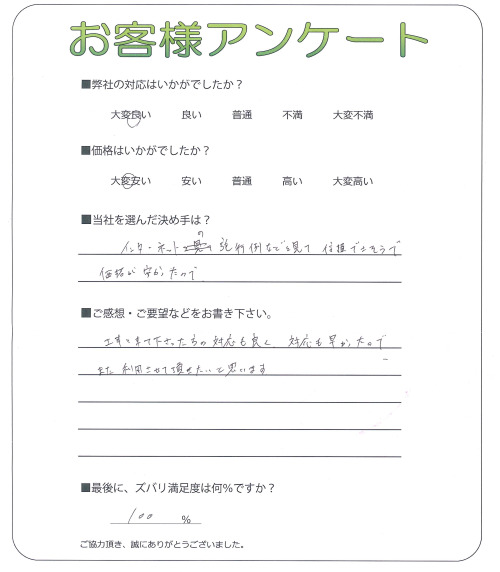 お客様アンケート
■弊社の対応はいかがでしたか？
大変良い 良い 普通 不満 大変不満
■価格はいかがでしたか？
大変安い 安い 普通 高い 大変高い
■当社を選んだ決め手は？
インターネットの 施行例などを見て 信頼できそうで
価格が安かったので
■ご感想・ご要望などをお書き下さい。
工事に来て下さった方の対応も良く、対応も早かったので
また利用させて頂きたいと思います
■最後に、ズバリ満足度は何%ですか？
100 %
ご協力頂き、誠にありがとうございました。